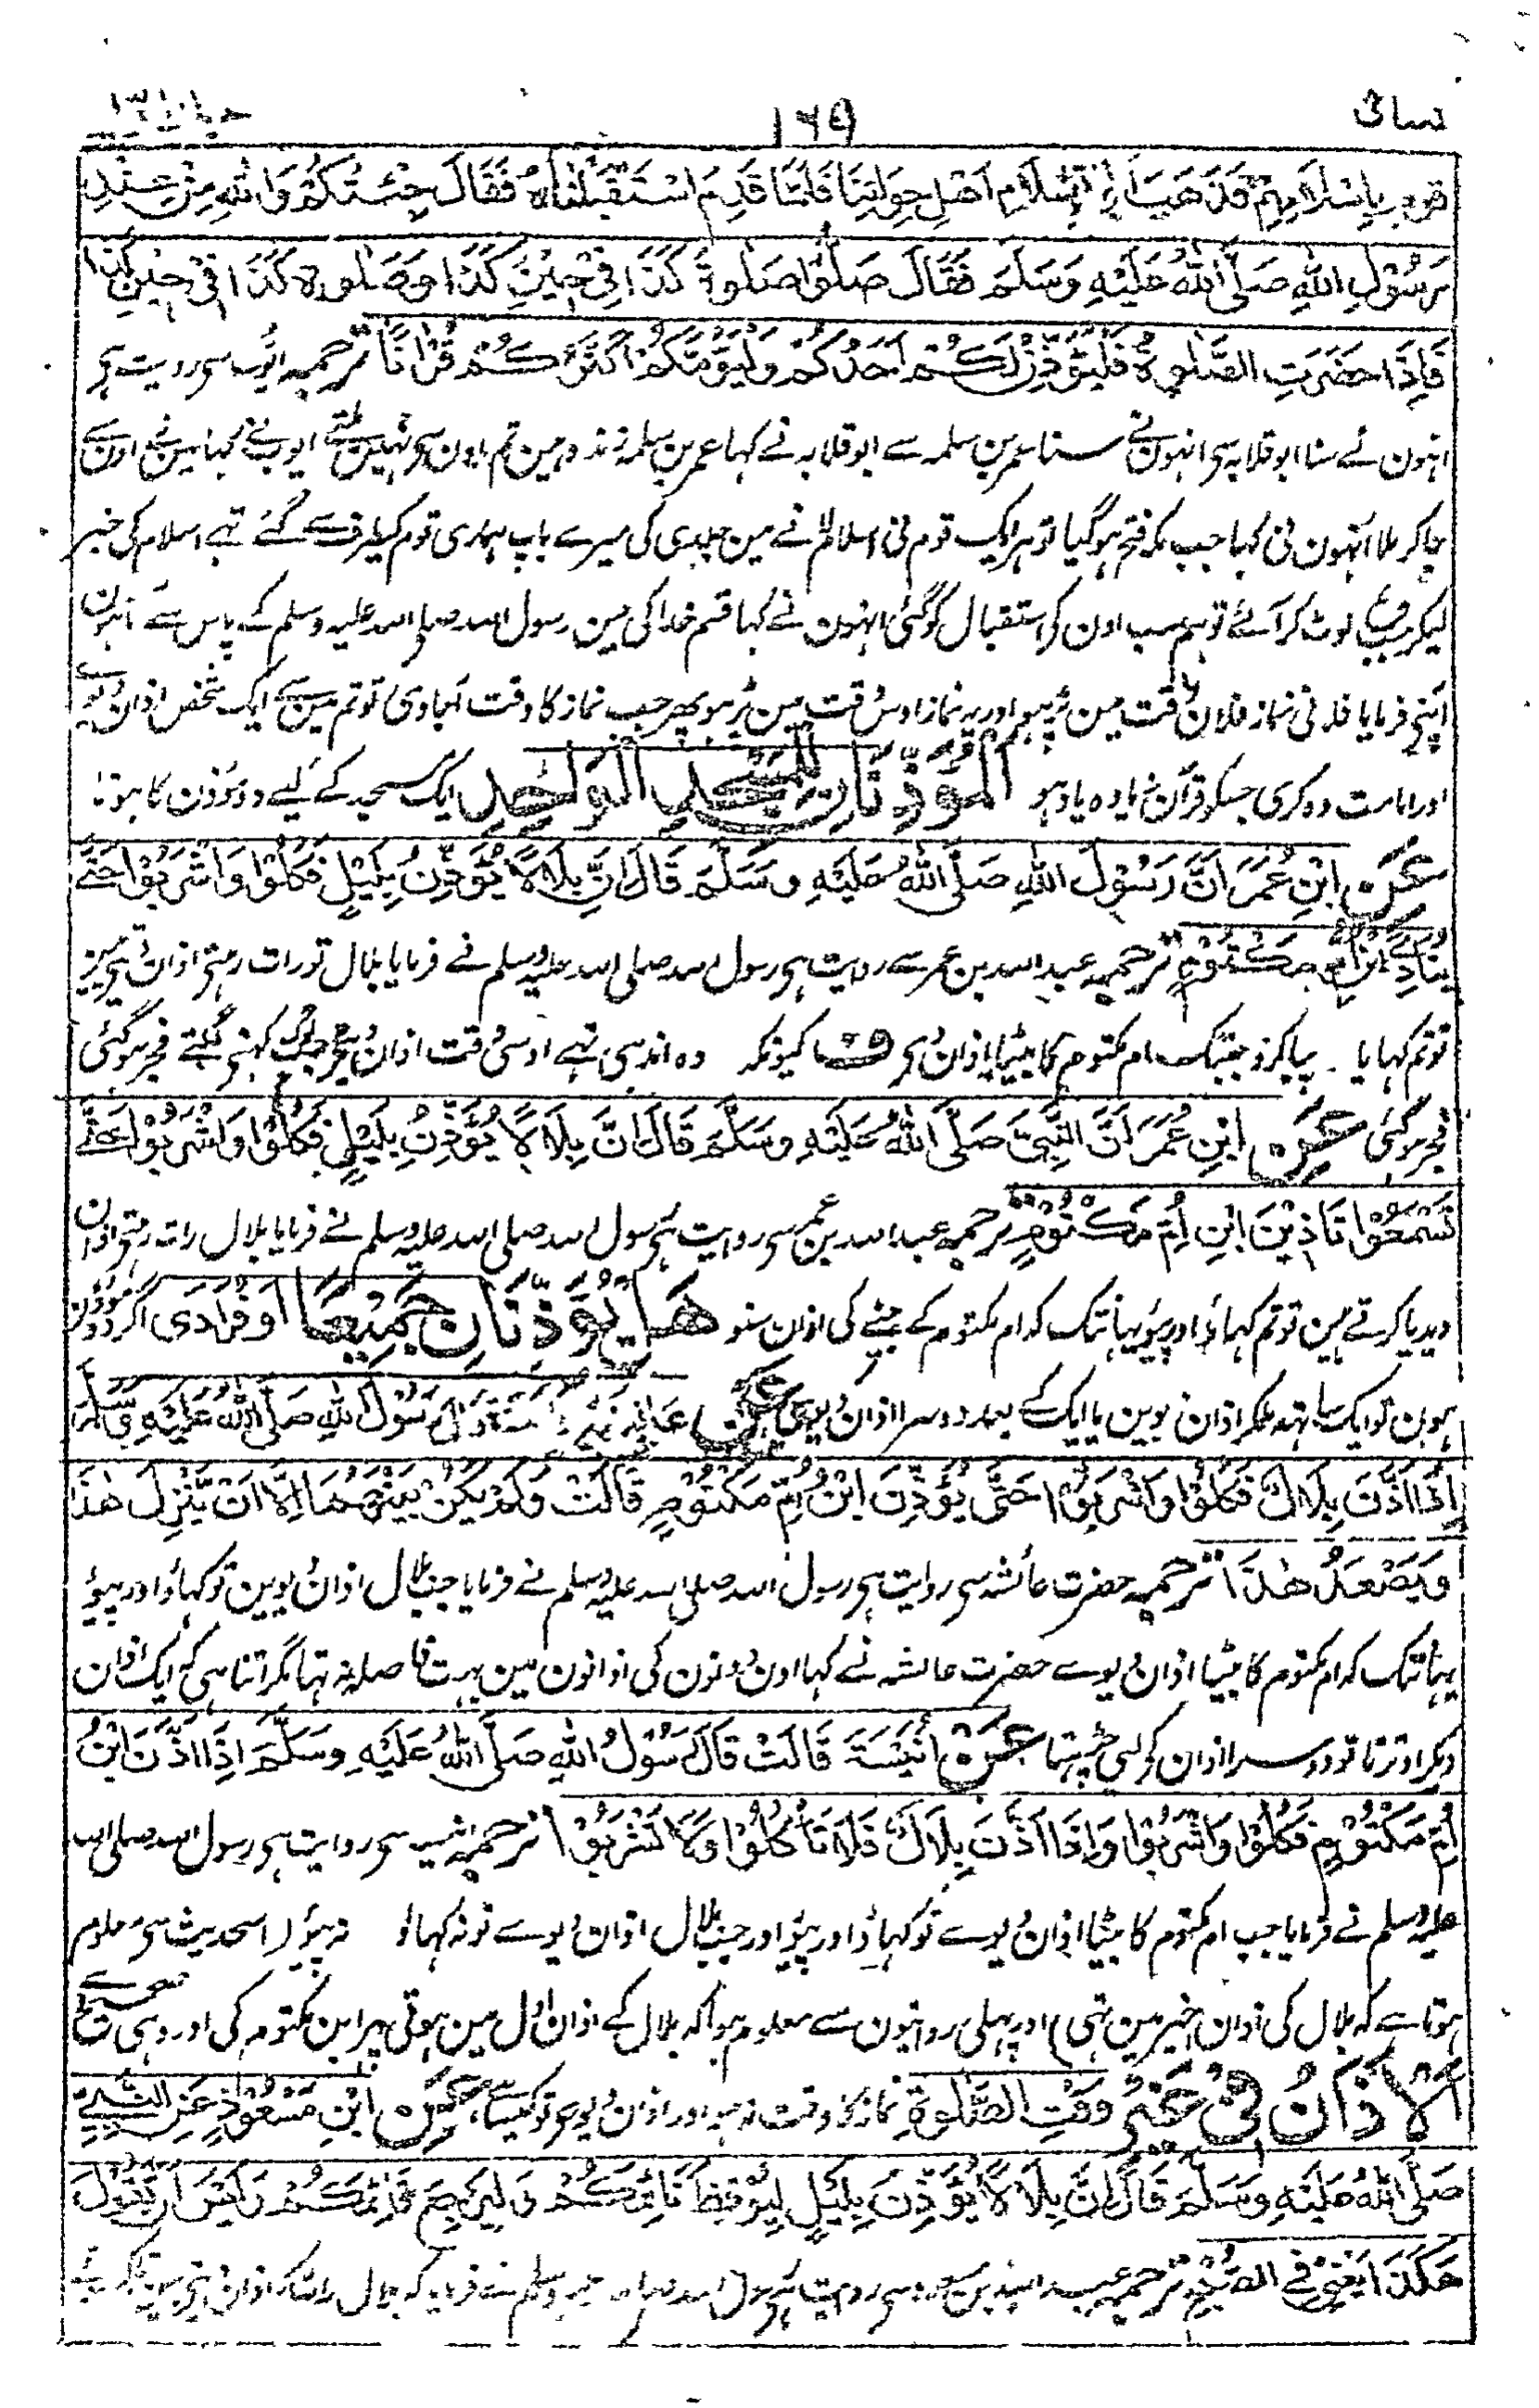 نسائی ۱۶۹
قوم باسلامهم فذهب ابی باسلام اهل حوائنا فلما قدم استقبلناه فقال جئتکم والله من عند
رسول الله صلی الله علیه وسلم فقال صلوا صلوة کذا فی حین کذا وصلوة کذا فی حین کذا
فاذا حضرت الصلوة فلیؤذن لکم احدکم ولیؤمکم اکثرکم قرانا ترجمہ ایوب سی روایت ہی
انہون نے سنا ابو قلابہ سی انہون نے سنا عمر بن سلمہ سے ابو قلابہ نے کہا عمر بن سلمہ زندہ ہین تم اون سی نہین ملتے ایوب نے کہا مین نے اون سے
جا کر ملا انہون نی کہا جب مکہ فتح ہو گیا تو ہر ایک قوم نی اسلام لانے مین جلدی کی میرے باپ ہماری قوم کیطرف سے گئے تہے اسلام کی خبر
لیکر جب وے لوٹ کر آئے تو ہم سب اون کی استقبال کو گئی انہون نے کہا قسم خدا کی مین رسول الله صلی الله علیہ وسلم کے پاس سے انہون
اپنی فرمایا فلانی نماز فلان وقت مین پڑہو اور یہ نماز اوس وقت مین پڑہو پھر جب نماز کا وقت آجاوی تو تم مین سے ایک شخص اذان دیوے
اور امامت وہ کری جسکو قرآن زیادہ یاد ہو المؤذنان للمسجد الواحد ایک مسجد کے لیے دو مؤذن کا ہونا
عن ابن عمر ان رسول الله صلی الله علیه وسلم قال ان بلالا یؤذن بلیل فکلوا واشربوا حتی
ینادی ابن ام مکتوم ترجمہ عبد الله بن عمر سے روایت ہی رسول الله صلی الله علیہ وسلم نے فرمایا بلال تو رات رہتی اذان دیتی ہین
تو تم کہایا پیا کرو جبتک ام مکتوم کا بیٹا اذان دی ف کیونکہ وہ اندہی تہے اوسی وقت اذان دیتی جب لوگ کہنی لگتے فجر ہو گئی
فجر ہو گئی عن ابن عمر ان النبی صلی الله علیه وسلم قال ان بلالا یؤذن بلیل فکلوا واشربوا حتی
تسمعوا تاذین ابن ام مکتوم ترجمہ عبد الله بن عمر سی روایت ہی رسول الله صلی الله علیہ وسلم نے فرمایا بلال رات رہتی اذان
دیدیا کرتے ہین تو تم کہاؤ اور پیو یہانتک کہ ام مکتوم کے بیٹے کی اذان سنو هل یؤذنان جمیعا او فرادی اگر دو مؤذن
ہون تو ایک ساتہ ملکر اذان دیوین یا ایک کے بعد دوسرا اذان دیوی عن عائشة قالت قال رسول الله صلی الله علیه وسلم
اذا اذن بلال فکلوا واشربوا حتی یؤذن ابن ام مکتوم قالت ولم یکن بینهما الا ان ینزل هذا
ویصعد هذا ترجمہ حضرت عائشہ سی روایت ہی رسول الله صلی الله علیہ وسلم نے فرمایا جب بلال اذان دیوین تو کہاؤ اور پیو
یہانتک کہ ام مکتوم کا بیٹا اذان دیوے حضرت عائشہ نے کہا اون دونون کی اذانون مین بہت فاصلہ نہ تہا مگر اتنا ہی کہ ایک اذان
دیکر اوترتا تو دوسرا اذان کو لئی چڑہتا عن انیسة قالت قال رسول الله صلی الله علیه وسلم اذا اذن ابن
ام مکتوم فکلوا واشربوا واذا اذن بلال فلا تاکلوا ولا تشربوا ترجمہ انیسہ سی روایت ہی رسول الله صلی الله
علیہ وسلم نے فرمایا جب ام مکتوم کا بیٹا اذان دیوے تو کہاؤ اور پیو اور جب بلال اذان دیوے تو نہ کہاؤ نہ پیو (اس حدیث سی معلوم
ہوتا ہے کہ بلال کی اذان اخیر مین تہی) اور پہلی روایتون سے معلوم ہوا کہ بلال کے اذان اول مین ہوتی پہر ابن مکتوم کی اور وہی صحیح ہے
الاذان فی غیر وقت الصلوة نماز کا وقت نہ ہو اور اذان دیوی تو کیسا ہے عن ابن مسعود عن النبی
صلی الله علیه وسلم قال ان بلالا یؤذن بلیل لیوقظ نائمکم ولیرجع قائمکم ولیس ان یقول
هکذا یعنی فی الصبح ترجمہ عبد الله بن مسعود سی روایت ہی رسول الله صلی الله علیہ وسلم نے فرمایا کہ بلال رات کو اذان دیتی ہین